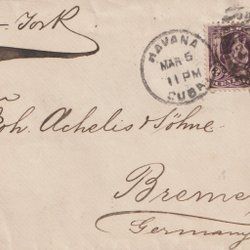 - York
HAVANA
MAR 5
11 PM
CUBA
Joh. Achelis & Söhne
Breme
Germany